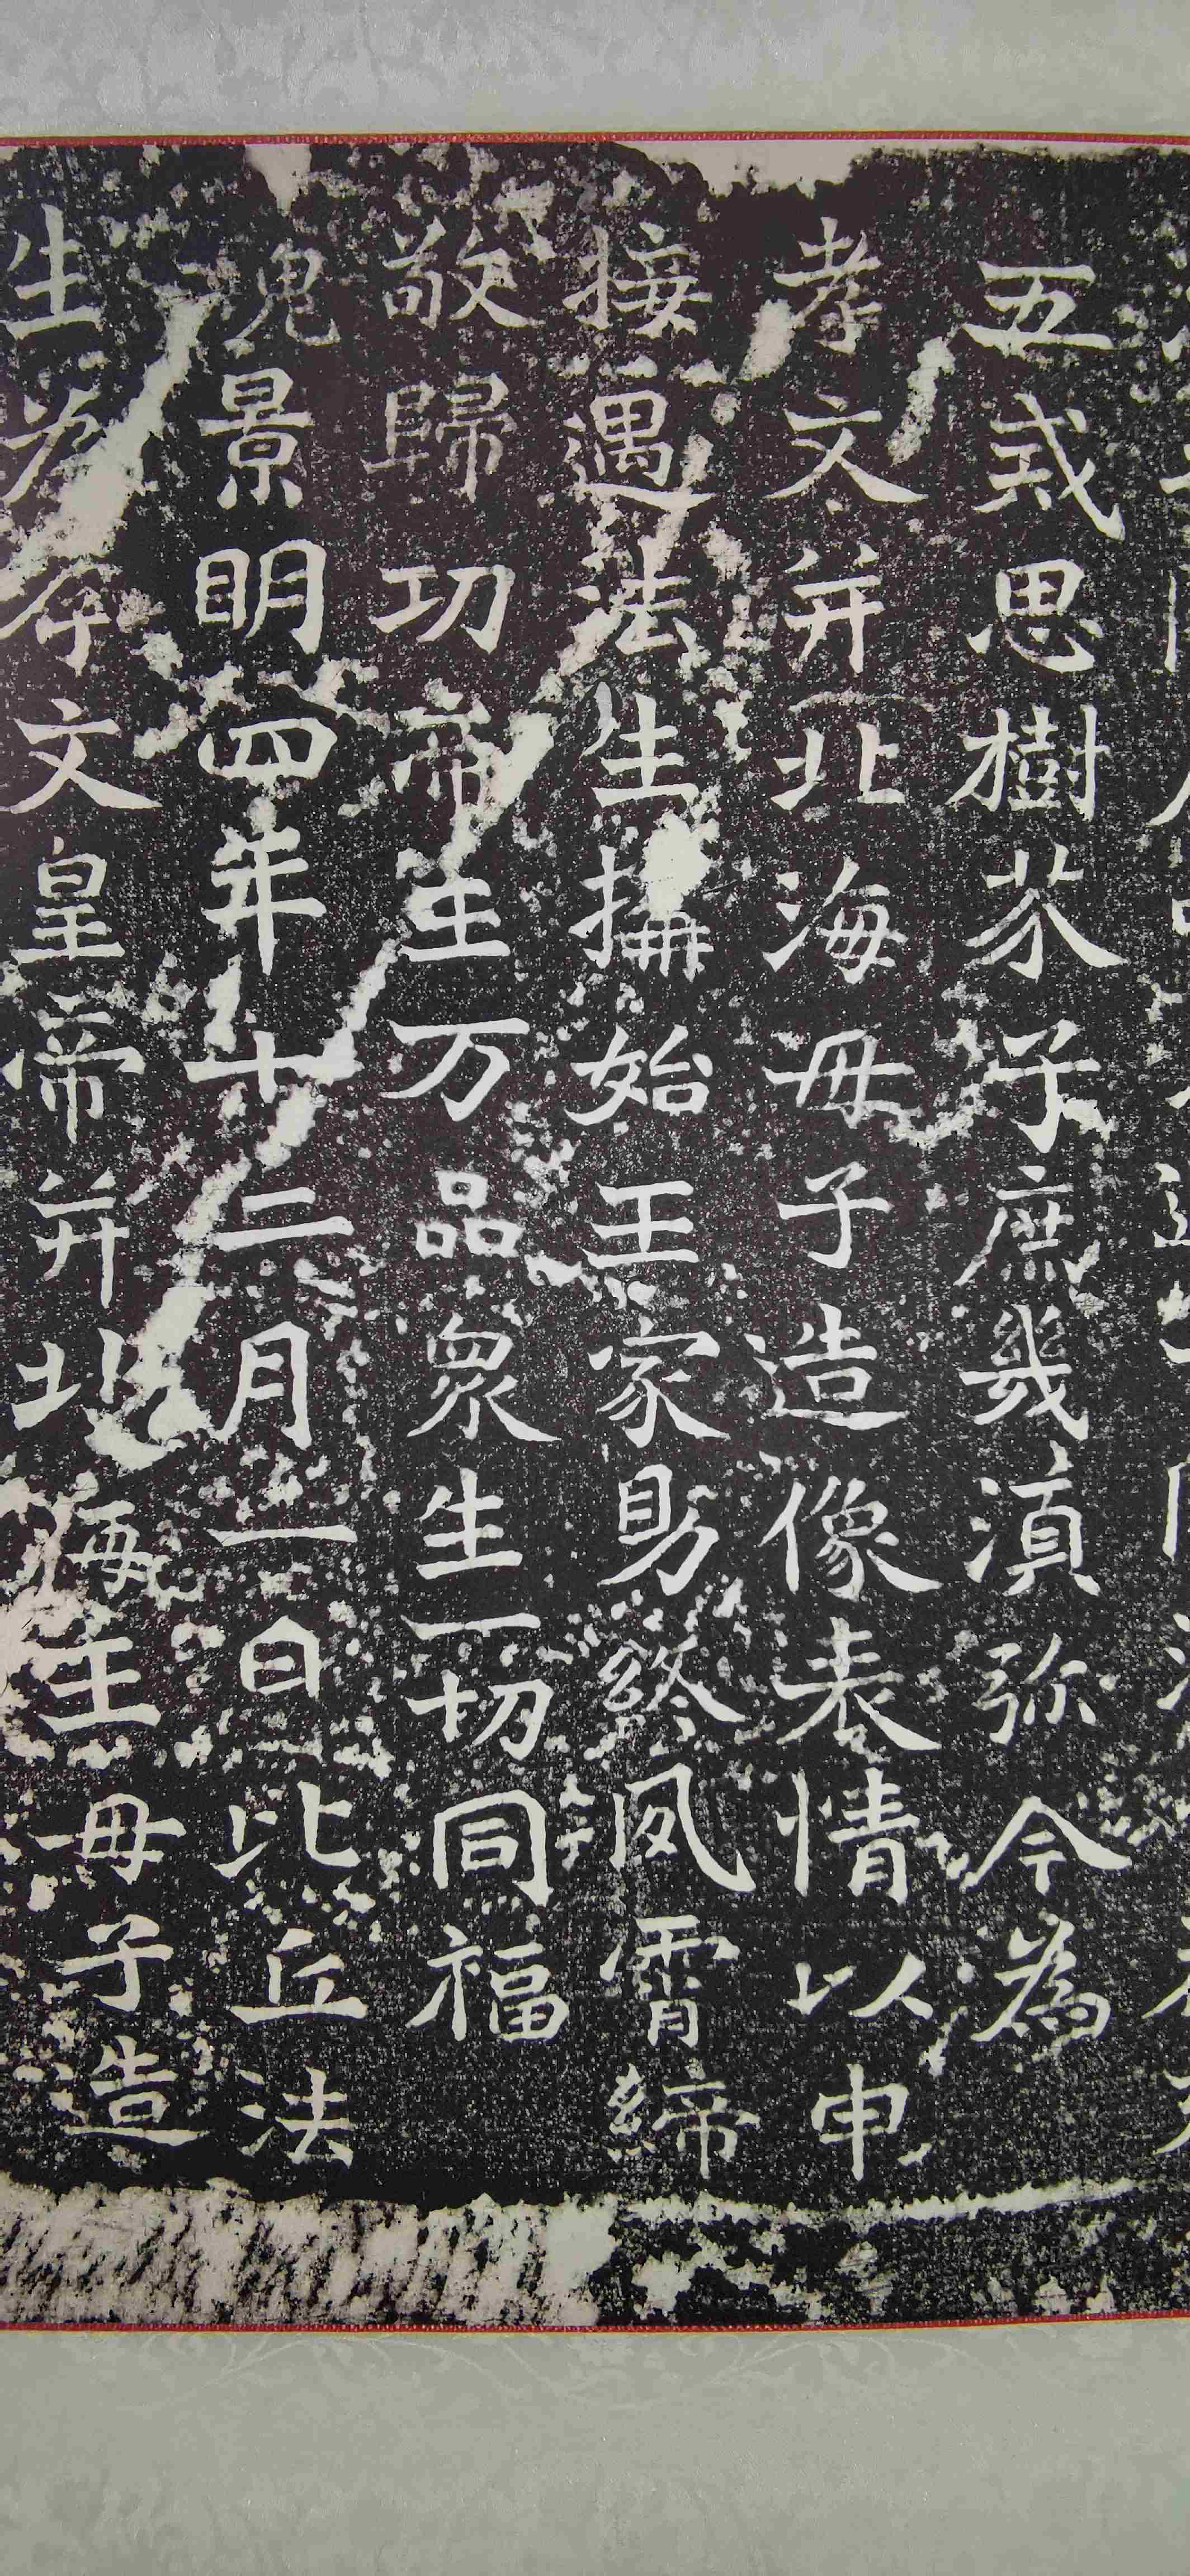 五戒思樹芥子庶幾湏弥今為
孝文并北海母子造像表情以申
接遇法生攝始王家助終夙霄締
敬歸功帝王万品衆生一切同福
魏景明四年十二月一日比丘法
生為孝文皇帝并北海王母子造